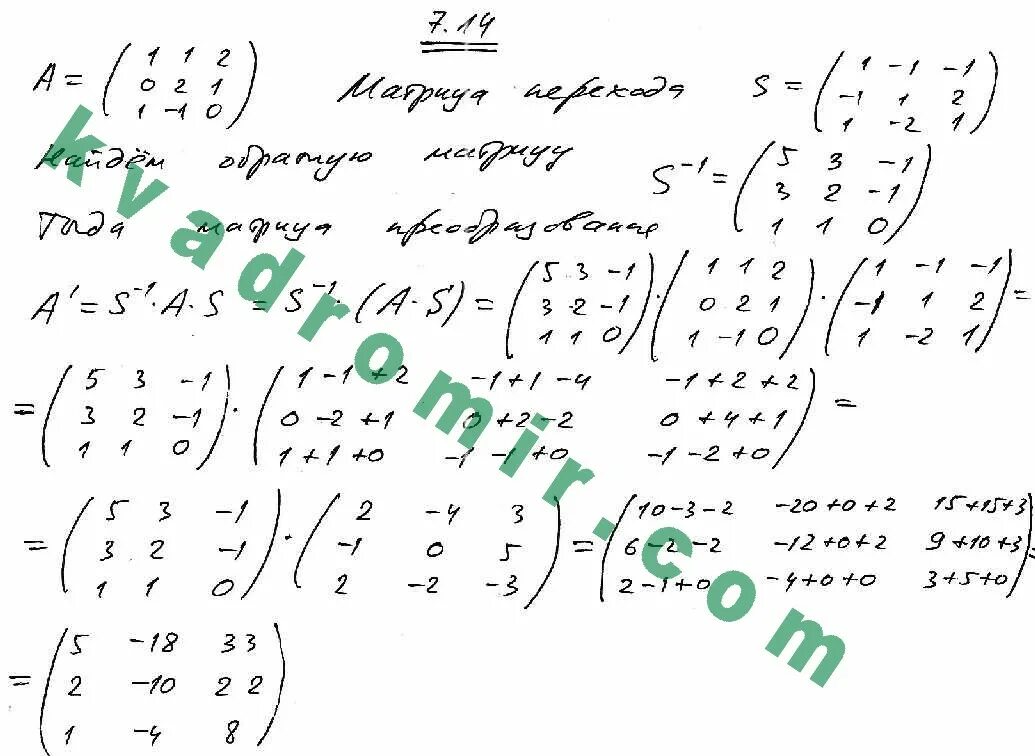 7.14
A = ( 1 1 2 / 0 2 1 / 1 -1 0 ) Матрица перехода S = ( 1 -1 -1 / -1 1 2 / 1 -2 1 )
Найдём обратную матрицу S⁻¹ = ( 5 3 -1 / 3 2 -1 / 1 1 0 )
Тогда матрица преобразования
A' = S⁻¹·A·S = S⁻¹·(A·S) = ( 5 3 -1 / 3 2 -1 / 1 1 0 )·( 1 1 2 / 0 2 1 / 1 -1 0 )·( 1 -1 -1 / -1 1 2 / 1 -2 1 ) =
= ( 5 3 -1 / 3 2 -1 / 1 1 0 )·( 1-1+2 -1+1-4 -1+2+2 / 0-2+1 0+2-2 0+4+1 / 1+1+0 -1-1+0 -1-2+0 ) =
= ( 5 3 -1 / 3 2 -1 / 1 1 0 )·( 2 -4 3 / -1 0 5 / 2 -2 -3 ) = ( 10-3-2 -20+0+2 15+15+3 / 6-2-2 -12+0+2 9+10+3 / 2-1+0 -4+0+0 3+5+0 ) =
= ( 5 -18 33 / 2 -10 22 / 1 -4 8 )
kvadromir.com